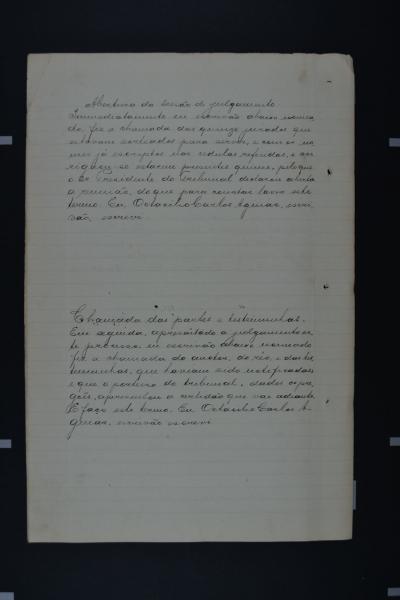 Abertura da sessão de julgamento.
Immediatamente eu escrivão abaixo nomea
do, fiz a chamada dos quinze jurados que
estavam sorteados para servir, e com os no
mes já escriptos nas cedulas referidas, e
se acharem presentes quinze, pelo que
o Sr. Presidente do Tribunal declarou aberta
a reunião, do que para constar lavro este
termo. Eu, Octacilio Carlos Aguiar, escri
vão, escrevi
Chamada das partes e testemunhas.
Em seguida, apresentado a julgamento es
te processo, eu escrivão abaixo nomeado
fiz a chamada do autor, do réo, e das tes
temunhas, que haviam sido notificadas
e que o porteiro do tribunal, dados os pre
gões, apresentou a certidão que vae adiante.
E faço este termo. Eu, Octacilio Carlos A
guiar, escrivão escrevi